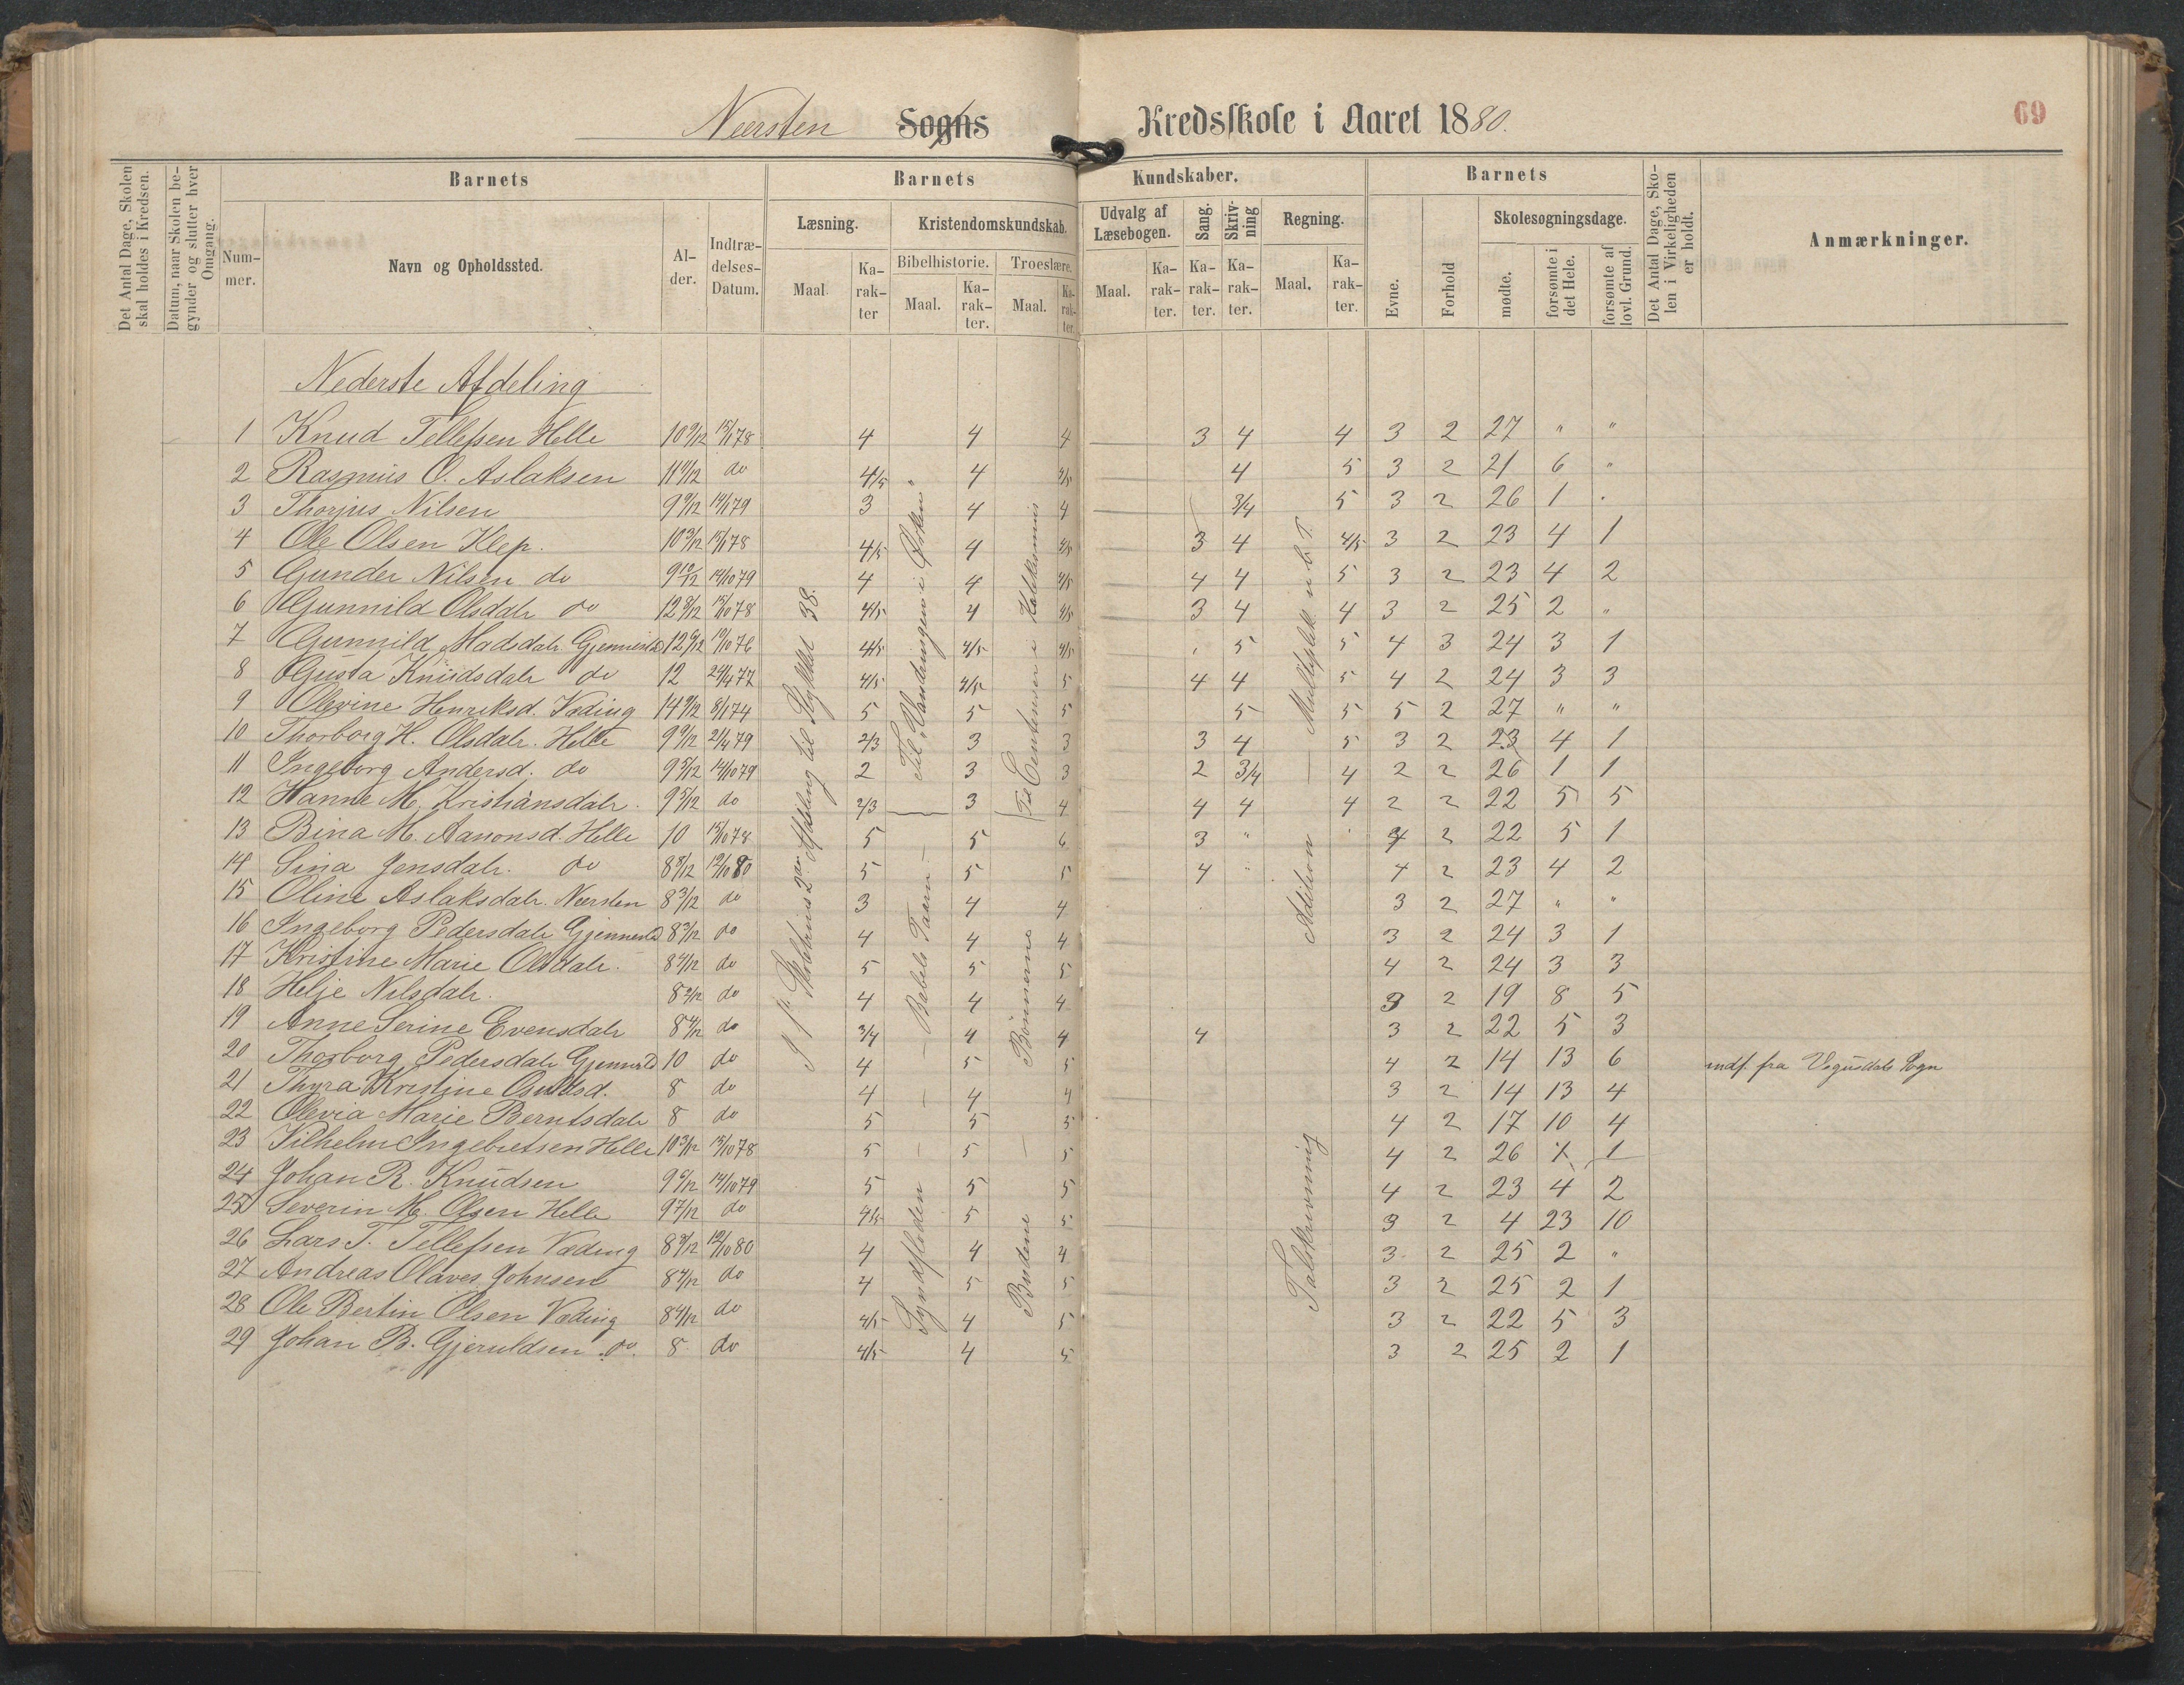 Nærsten Sogns Kredsskole i Aaret 1880.
69
Det Antal Dage, Skolen skal holdes i Kredsen.
Datum, naar Skolen begynder og slutter hver Omgang.
Barnets
Nummer.
Navn og Opholdssted.
Alder.
Indtrædelses-Datum.
Barnets Kundskaber.
Læsning.
Maal
Karakter
Kristendomskundskab.
Bibelhistorie.
Maal.
Karakter.
Troeslære.
Maal.
Karakter.
Udvalg af Læsebogen.
Maal.
Karakter.
Sang.
Karakter.
Skrivning
Karakter.
Regning.
Maal.
Karakter.
Barnets
Evne.
Forhold
Skolesøgningsdage.
mødte.
forsømte i det Hele.
forsømte af lovl. Grund.
Det Antal Dage, Skolen i Virkeligheden er holdt.
Anmærkninger.
Nederste Afdeling
1 Knud Tellefsen Helle 10 9/12 15/1 78 4 4 4 3 4 4 3 2 27 " "
2 Rasmus O. Aslaksen 11 9/12 do 4/5 4 4/5 4 5 3 2 21 6 "
3 Thorjus Nilsen 9 9/12 14/1 79 3 4 4 3/4 5 3 2 26 1 "
4 Ole Olsen Klep. 10 3/12 15/1 78 4/5 4 4/5 3 4 4/5 3 2 23 4 1
5 Gunder Nilsen do 9 10/12 14/10 79 4 4 4/5 4 4 5 3 2 23 4 2
6 Gunnild Olsdatr do 12 8/12 15/10 78 4/5 4 4/5 3 4 4 3 2 25 2 "
7 Gunnild Madsdatr Gjennesld 12 6/12 19/10 76 4/5 4/5 4/5 5 5 4 3 24 3 1
8 Gusta Knudsdatr do 12 24/4 77 4/5 4/5 5 4 4 5 4 2 24 3 3
9 Olevine Henriksd. Væding 14 9/12 8/1 74 5 5 5 5 5 5 2 27 " "
10 Thorborg H. Olsdatr. Helle 9 9/12 21/4 79 2/3 3 3 3 4 5 3 2 23 4 1
11 Ingeborg Andersd. do 9 5/12 14/10 79 2 3 3 2 3/4 4 2 2 26 1 1
12 Hanne M. Kristiansdatr. 9 5/12 do 2/3 3 4 4 4 4 2 2 22 5 5
13 Bina M. Aanonsd. Helle 10 15/10 78 5 5 6 3 " 4 2 22 5 1
14 Sina Jensdatr. do 8 8/12 12/10 80 5 5 5 4 " 4 2 23 4 2
15 Oline Aslaksdatr. Nærsten 8 3/12 do 3 4 4 3 2 27 " "
16 Ingeborg Pedersdatr Gjennesld 8 3/12 do 4 4 4 3 2 24 3 1
17 Kristine Marie Olsdatr. 8 4/12 do 5 5 5 4 2 24 3 3
18 Helje Nilsdatr. 8 2/12 do 4 4 4 3 2 19 8 5
19 Anne Serine Evensdatr 8 4/12 do 3/4 4 4 4 3 2 22 5 3
20 Thorborg Pedersdatr Gjennesld 10 do 4 5 5 4 2 14 13 6 indf. fra Vegusdals Sogn
21 Thyra Kristine 8 do 4 4 4 3 2 14 13 4
22 Olevia Marie Berntsdatr 8 do 5 5 5 4 2 17 10 4
23 Vilhelm Ingebretsen Helle 10 3/12 15/10 78 5 5 5 4 2 26 1 1
24 Johan R. Knudsen 9 6/12 14/10 79 5 5 5 4 2 23 4 2
25 Severin M. Olsen Helle 9 7/12 do 4/5 5 5 3 2 4 23 10
26 Lars T. Tellefsen Væding 8 8/12 12/10 80 4 4 4 3 2 25 2 "
27 Andreas Olaves Johnsen 8 4/12 do 4 5 5 3 2 25 2 1
28 Ole Bertin Olsen Væding 8 4/12 do 4/5 4 5 3 2 22 5 3
29 Johan B. Gjeruldsen do. 8 do 4/5 4 5 3 2 25 2 1
Afdeling til Stykket 38.
Til "Vandringen i Ørken"
Babels Taarn
Syndfloden
Til i Katekismus
Bønnerne
Budene
Multiplik
Adition
Talskrivning